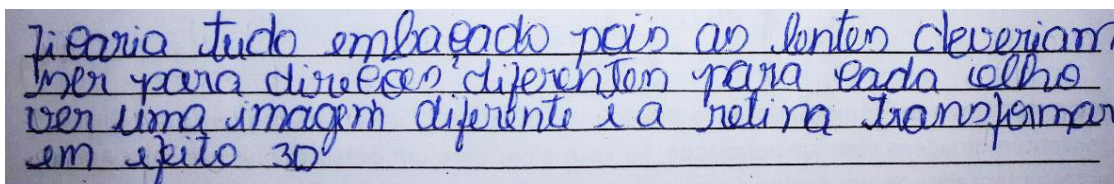 ficaria tudo embaçado, pois as lentes deveriam
ser para direções diferentes para cada olho
ver uma imagem diferente e a retina transformar
em efeito 3D